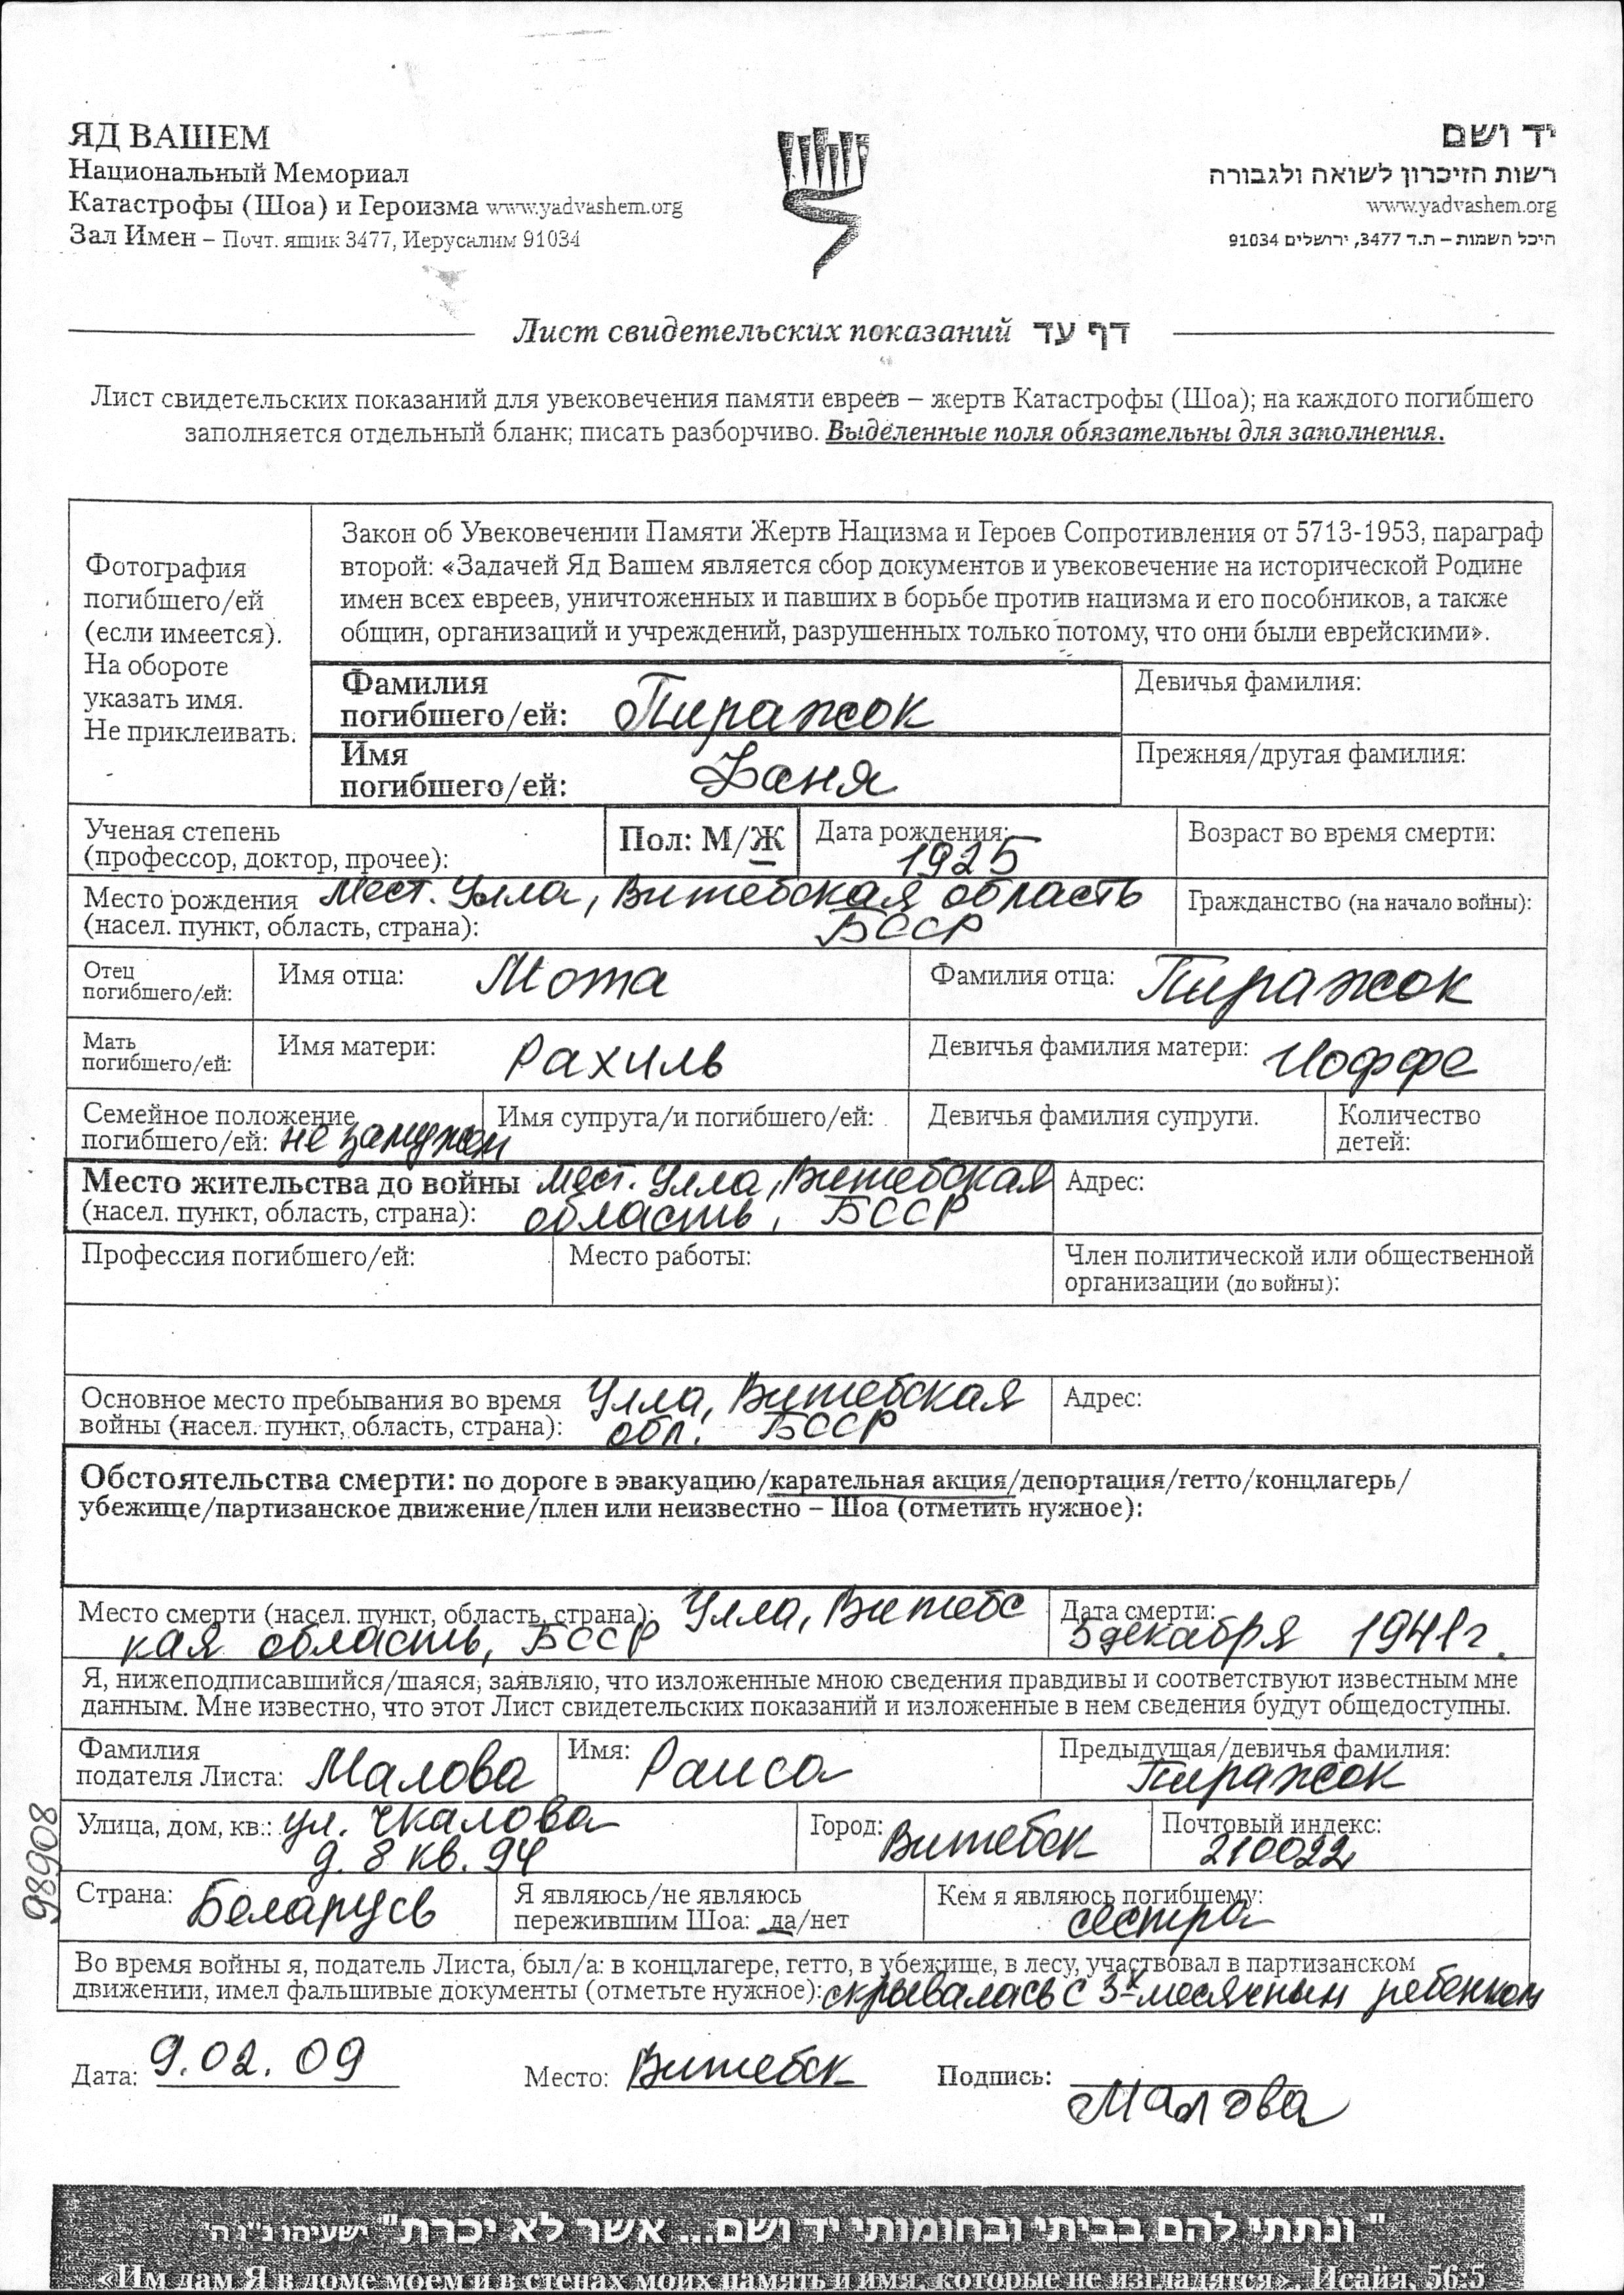 ЯД ВАШЕМ
Национальный Мемориал
Катастрофы (Шоа) и Героизма www.yadvashem.org
Зал Имен – Почт. ящик 3477, Иерусалим 91034
יד ושם
רשות הזיכרון לשואה ולגבורה
www.yadvashem.org
היכל השמות – ת.ד 3477, ירושלים 91034
Лист свидетельских показаний דף עד
Лист свидетельских показаний для увековечения памяти евреев – жертв Катастрофы (Шоа); на каждого погибшего
заполняется отдельный бланк; писать разборчиво. Выделенные поля обязательны для заполнения.
Фотография
погибшего/ей
(если имеется).
На обороте
указать имя.
Не приклеивать.
Закон об Увековечении Памяти Жертв Нацизма и Героев Сопротивления от 5713-1953, параграф
второй: «Задачей Яд Вашем является сбор документов и увековечение на исторической Родине
имен всех евреев, уничтоженных и павших в борьбе против нацизма и его пособников, а также
общин, организаций и учреждений, разрушенных только потому, что они были еврейскими».
Фамилия
погибшего/ей: Пиражок
Девичья фамилия:
Имя
погибшего/ей: Фаня
Прежняя/другая фамилия:
Ученая степень
(профессор, доктор, прочее):
Пол: М/Ж
Дата рождения:
1925
Возраст во время смерти:
Место рождения мест. Улла, Витебская область
(насел. пункт, область, страна): БССР
Гражданство (на начало войны):
Отец
погибшего/ей:
Имя отца: Мота
Фамилия отца: Пиражок
Мать
погибшего/ей:
Имя матери: Рахиль
Девичья фамилия матери: Иоффе
Семейное положение
погибшего/ей: не замужем
Имя супруга/и погибшего/ей:
Девичья фамилия супруги.
Количество
детей:
Место жительства до войны мест. Улла, Витебская
(насел. пункт, область, страна): область, БССР
Адрес:
Профессия погибшего/ей:
Место работы:
Член политической или общественной
организации (до войны):
Основное место пребывания во время Улла, Витебская
войны (насел. пункт, область, страна): обл. БССР
Адрес:
Обстоятельства смерти: по дороге в эвакуацию/карательная акция/депортация/гетто/концлагерь/
убежище/партизанское движение/плен или неизвестно – Шоа (отметить нужное):
Место смерти (насел. пункт, область, страна): Улла, Витебс
кая область, БССР
Дата смерти:
5 декабря 1941г.
Я, нижеподписавшийся/шаяся, заявляю, что изложенные мною сведения правдивы и соответствуют известным мне
данным. Мне известно, что этот Лист свидетельских показаний и изложенные в нем сведения будут общедоступны.
Фамилия
подателя Листа: Малова
Имя: Раиса
Предыдущая/девичья фамилия:
Пиражок
Улица, дом, кв.: ул. Чкалова
д. 8 кв. 94
Город: Витебск
Почтовый индекс:
210022
98908
Страна: Беларусь
Я являюсь/не являюсь
пережившим Шоа: да/нет
Кем я являюсь погибшему:
сестра
Во время войны я, податель Листа, был/а: в концлагере, гетто, в убежище, в лесу, участвовал в партизанском
движении, имел фальшивые документы (отметьте нужное): скрывалась с 3х месячным ребенком
Дата: 9.02.09
Место: Витебск
Подпись: Малова
"ונתתי להם בביתי ובחומותי יד ושם... אשר לא יכרת" ישעיהו נ"ו ה'
«Им дам Я в доме моем и в стенах моих память и имя, которые не изгладятся». Исайя, 56:5